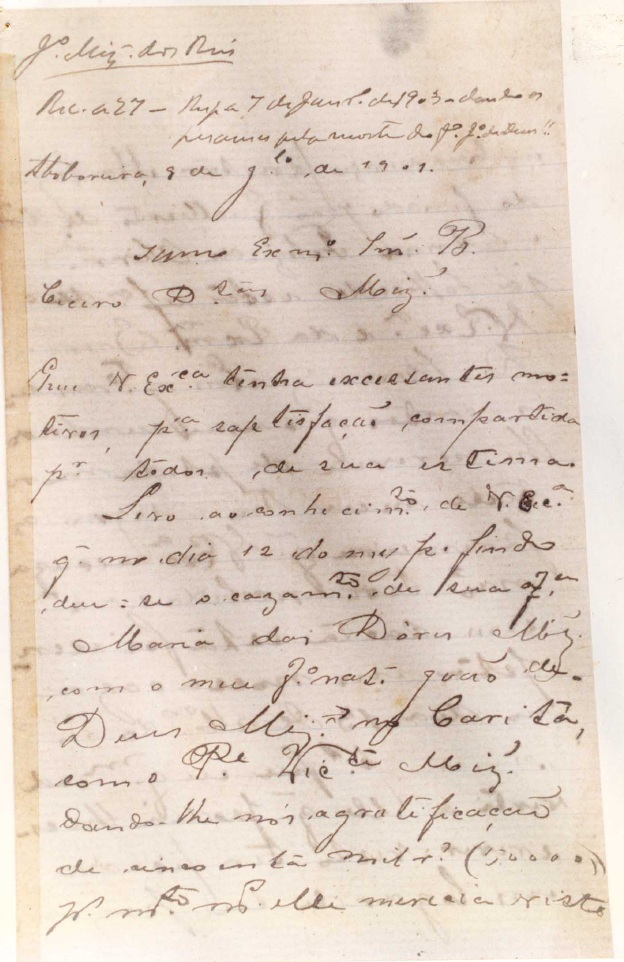 Jº. Miz. dos Reis
Rec. a 27 – Resp. a 7 de Janr. de 1903 – dando os
pesames pela morte do fº. Jº. de Deus!!
Aboboreira, 9 de de 1901.
Illmo Exmº. Snr. B.
Cicero D.tas Miz.
Que V. Exc.ca tenha excessantes mo=
tivos, p.a saptisfação, compartida
p.r todos, de sua estima.
Levo ao conhecim.to de V. Exc.a
q. no dia 12 do mes p. findo
deu=se o cazam.to de sua
Maria das Dôres Miz.
com o meu fº nat. João de-
Deus Miz. no Caritá,
com o P.e Vic.te Miz.
dando-lhe nós agratificação
de cincoenta mil r.s (50000)
p.r elle merecia visto